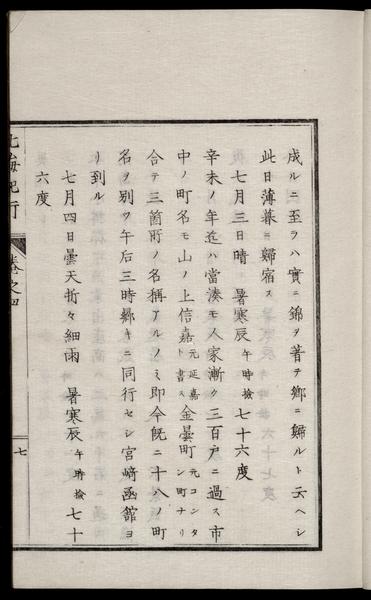 成ルニ至ラハ實ニ錦ヲ著テ郷ニ歸ルト云ヘシ
此日薄暮ニ歸宿ス
七月三日晴 暑寒辰午時檢七十六度
辛未ノ年迄ハ當湊モ人家漸ク三百戸ニ過ス市
中ノ町名モ山ノ上信嘉元延嘉ト書ス金曇町元コンタン町ナリ
合テ三箇所ノ名稱アルノミ即今既ニ十八ノ町
名ヲ別ツ午后三時郷キニ同行セシ宮﨑函館ヨ
リ到ル
七月四日曇天折々細雨 暑寒辰午時檢七十
六度
北海紀行 卷之四 七